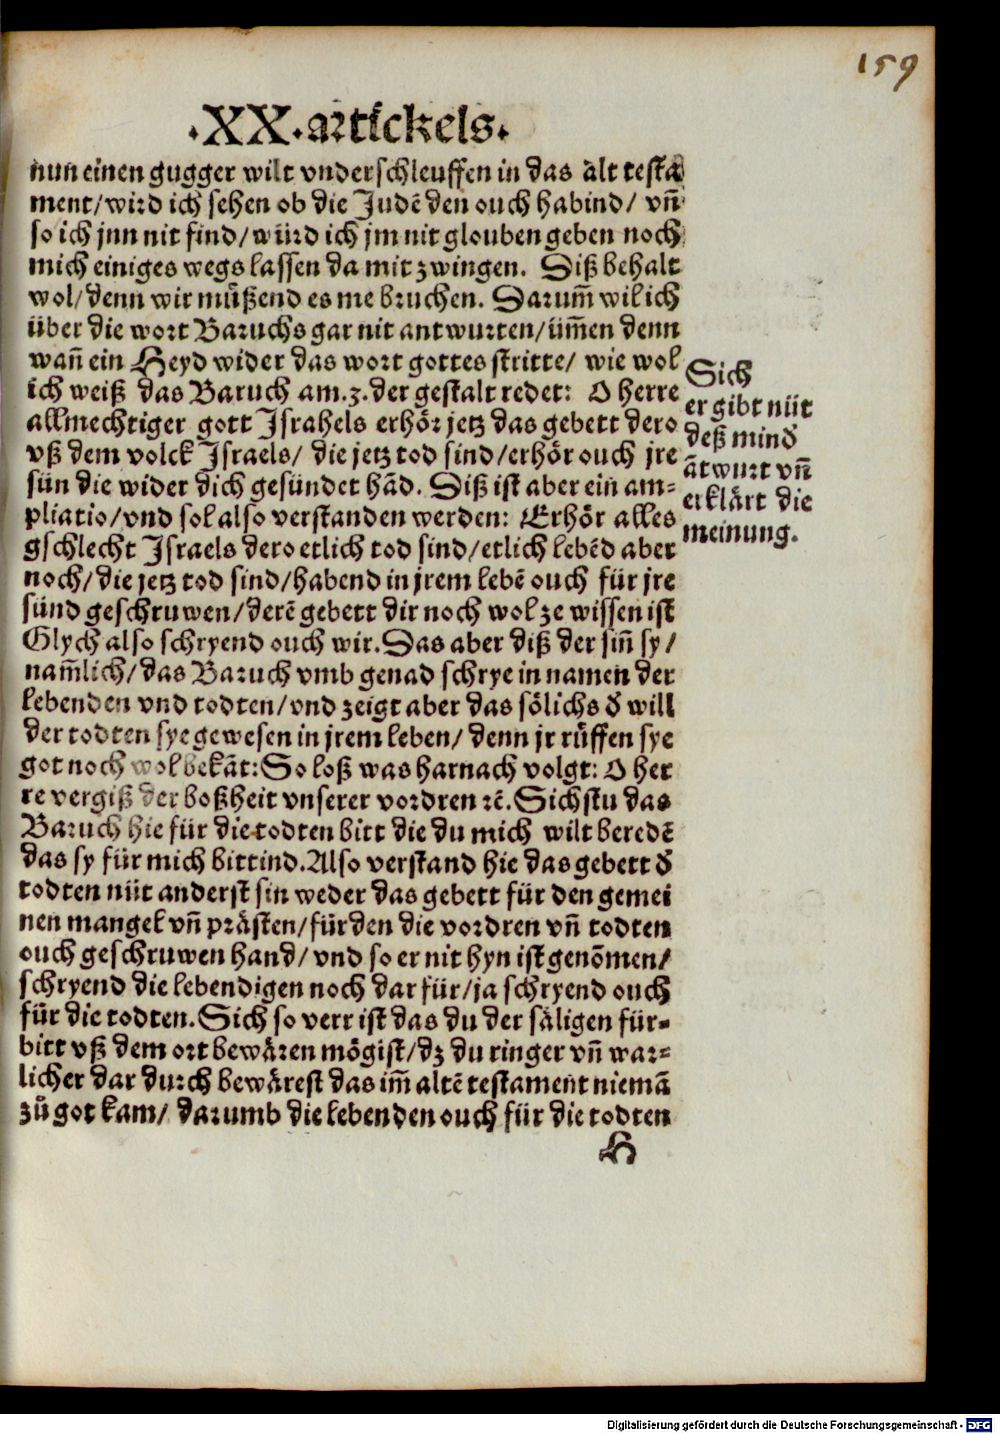 159
·XX·artickels·
nun einen gugger wilt vnderschleuffen in das alt testa
ment/wird ich sehen ob die Judē den ouch habind/ vn̄
so ich jnn nit find/würd ich jm nit glouben geben noch
mich einiges wegs lassen da mit zwingen. Diß behalt
wol/denn wir müßend es me bruchen. Darum̄ wil ich
über die wort Baruchs gar nit antwurten/üm̄en denn
wan̄ ein Heyd wider das wort gottes stritte/ wie wol
ich weiß das Baruch am.3.der gestalt redet: O herre
allmechtiger gott Israhels erhör jetz das gebett dero
vß dem volck Israels/ die jetz tod sind/erhör ouch jre
sün die wider dich gesündet hād. Diß ist aber ein am-
pliatio/vnd sol also verstanden werden: Erhör alles
gschlecht Israels dero etlich tod sind/etlich lebēd aber
noch/die jetz tod sind/habend in jrem lebē ouch für jre
sünd geschruwen/derē gebett dir noch wol ze wissen ist
Glych also schryend ouch wir. Das aber diß der sin̄ sy/
nam̄lich/das Baruch vmb genad schrye in namen der
lebenden vnd todten/vnd zeigt aber das sölichs d̕ will
der todten sye gewesen in jrem leben/ denn jr rüffen sye
got noch wol bekāt: So loß was harnach volgt: O her
re vergiß der boßheit vnserer vordren ꝛē. Sichstu das
Baruch hie für die todten bitt die du mich wilt beredē
das sy für mich bittind. Also verstand hie das gebett d̕
todten nüt anderst sin weder das gebett für den gemei
nen mangel vn̄ prästen/für den die vordren vn̄ todten
ouch geschruwen hand/ vnd so er nit hyn ist genōmen/
schryend die lebendigen noch dar für/ja schryend ouch
für die todten. Sich so verr ist das du der säligen für-
bitt vß dem ort bewären mögist/dz du ringer vn̄ war-
licher dar durch bewärest das im̄ altē testament niemā
zů got kam/ darumb die lebenden ouch für die todten
H
Sich
er gibt nüt
deß mind̕
ātwurt vn̄
erklärt die
meinung.
Digitalisierung gefördert durch die Deutsche Forschungsgemeinschaft - DFG